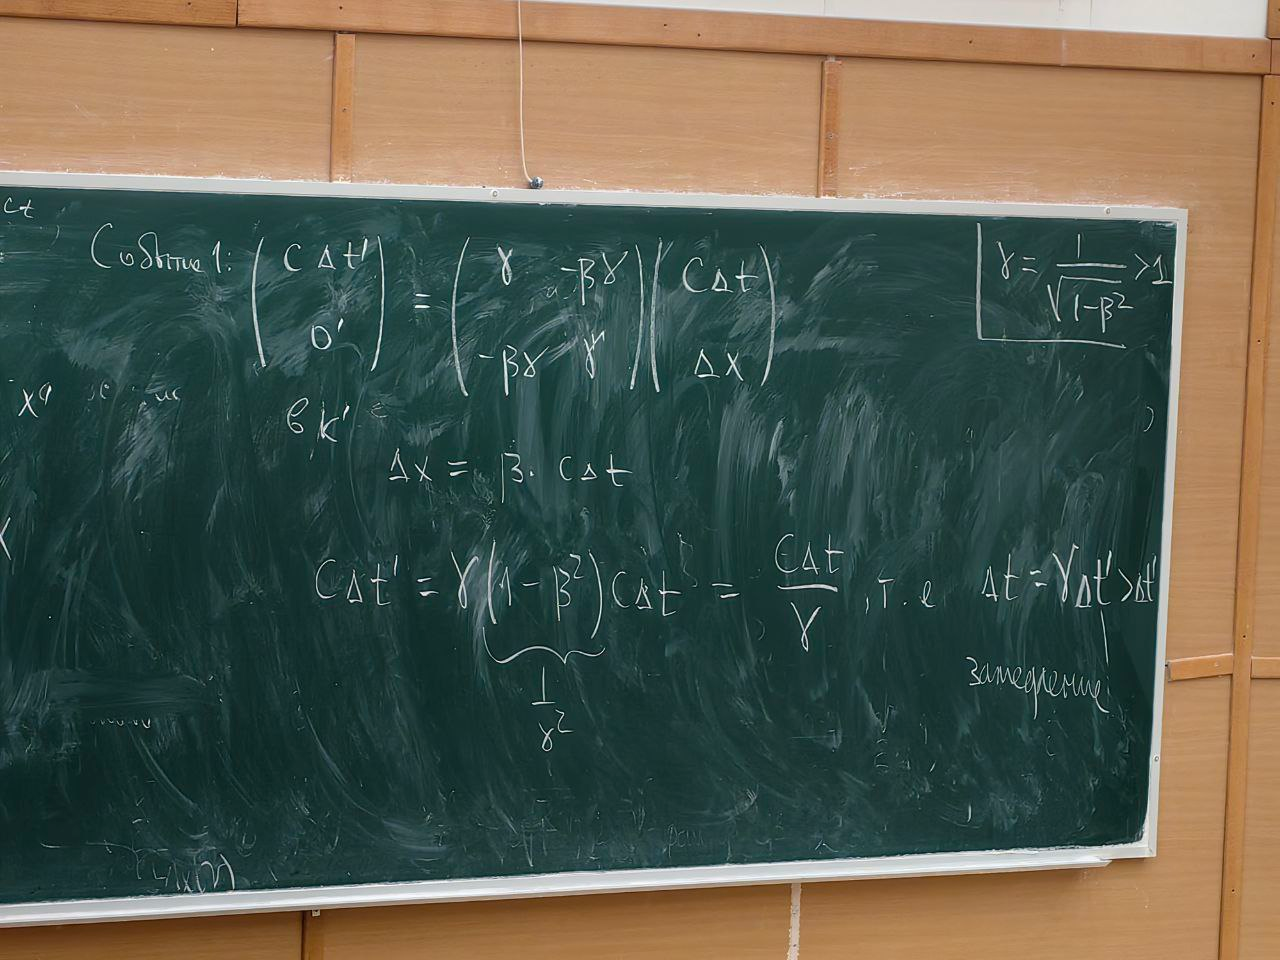 ct
Событие 1: ( cΔt' 0' ) = ( γ -βγ -βγ γ ) ( cΔt Δx )
γ = 1/√(1-β²) > 1
в K'
Δx = β · cΔt
cΔt' = γ(1 - β²)cΔt = cΔt/γ , т.е Δt = γΔt' > Δt'
1/γ²
замедление